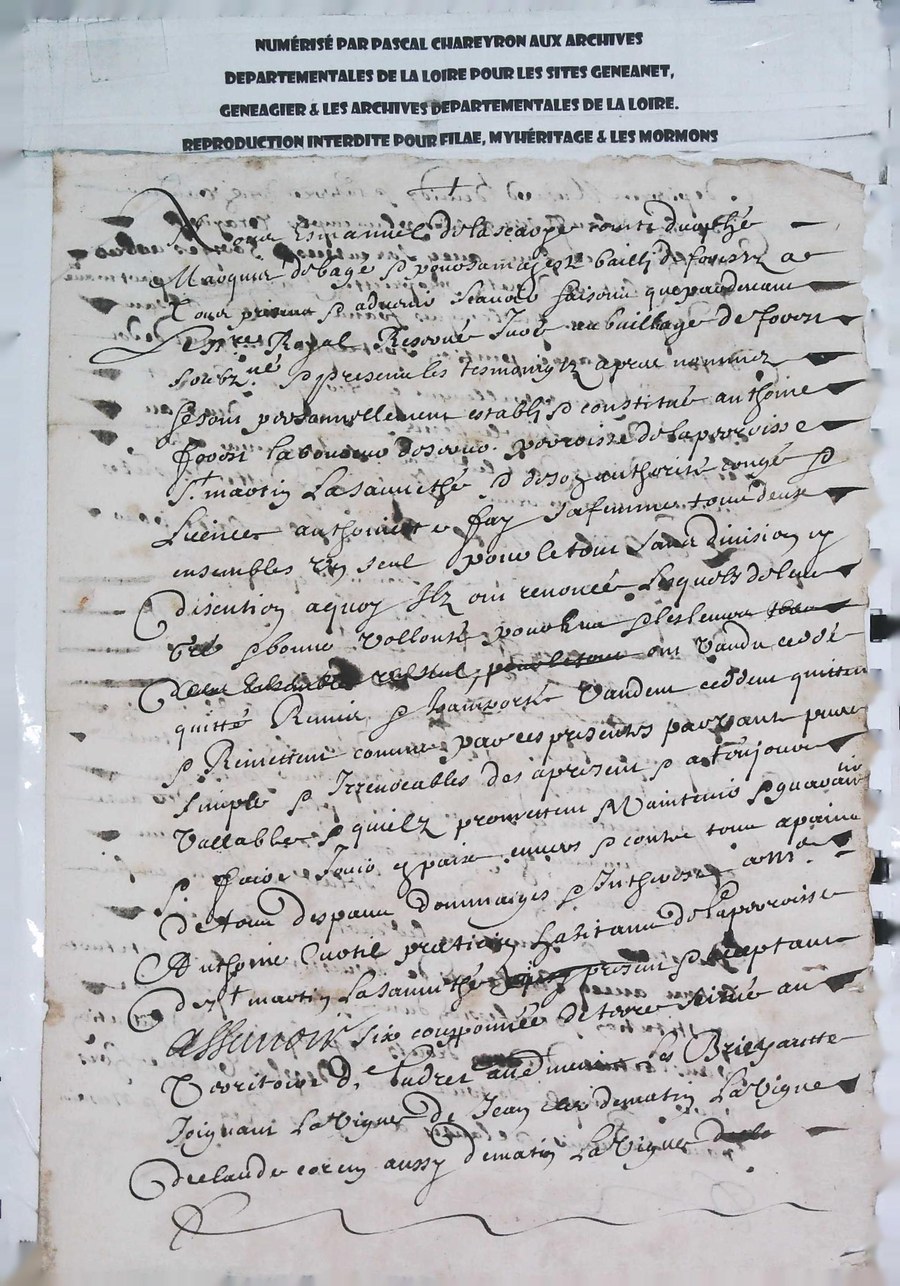 NUMÉRISÉ PAR PASCAL CHAREYRON AUX ARCHIVES
DEPARTEMENTALES DE LA LOIRE POUR LES SITES GENEANET,
GENEAGIER & LES ARCHIVES DEPARTEMENTALES DE LA LOIRE.
REPRODUCTION INTERDITE POUR FILAE, MYHÉRITAGE & LES MORMONS
Esmanuel de lascaris comte durphé
Marquis debagé & pour samajesté bailly de forestz a
Tous presens & advenir scavoir faisons que pardevant
Royal Reservé Juré au bailliage de forest
soubz.né & presens les tesmoingtz apres nommez
se sont personnellement establiz & constitué anthoine
parroisse de la parroisse
St martin Lasauveté & de soz authorité congé &
Licence anthoinette fay safemme tous deux
ensembles un seul pour le tout sans division ny
discution aquoy Ilz ont renoncé Lesquelz de leur
gré & bonne vollonté pour eux & les leurs
ont vandu ceddé
quitté Remis & transporté vandent ceddent quittent
& Remettent comme par ces presentes parvante pure
simple & Irrevocables des apresent & atoujours
vallable & quilz promettent Maintenir & guarantir
& faire Jouir en paix envers & contre tous apaine
de tous despans dommaiges & Intherestz a me
Anthoine praticien habitant de la parroisse
de St martin Lasauveté present & acceptant
Assavoir six coupponnée de terre scitué au
Territoire de
Joignant La vigne de Jean de matin La vigne
de claude aussy de matin La vigne